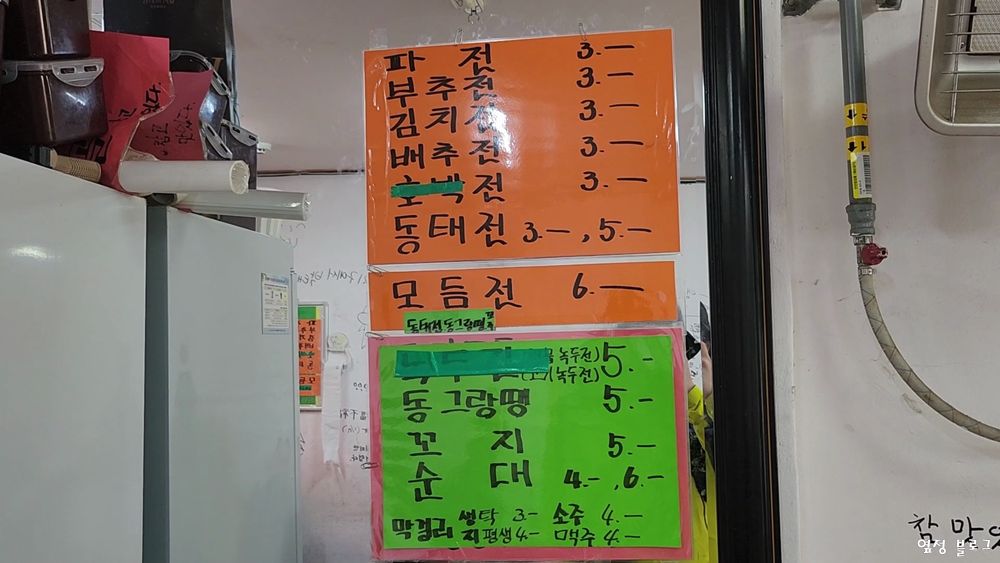 파 전 3.—
부추전 3.—
김치전 3.—
배추전 3.—
전 3.—
동태전 3.—, 5.—
모듬전 6.—
동태전동그랑땡
녹두전) 5.—
(고기녹두전)
동그랑땡 5.—
꼬 지 5.—
순 대 4.—, 6.—
막걸리 생탁 3.— 소주 4.—
지평생 4.— 맥주 4.—
참 망
옆정 블로그